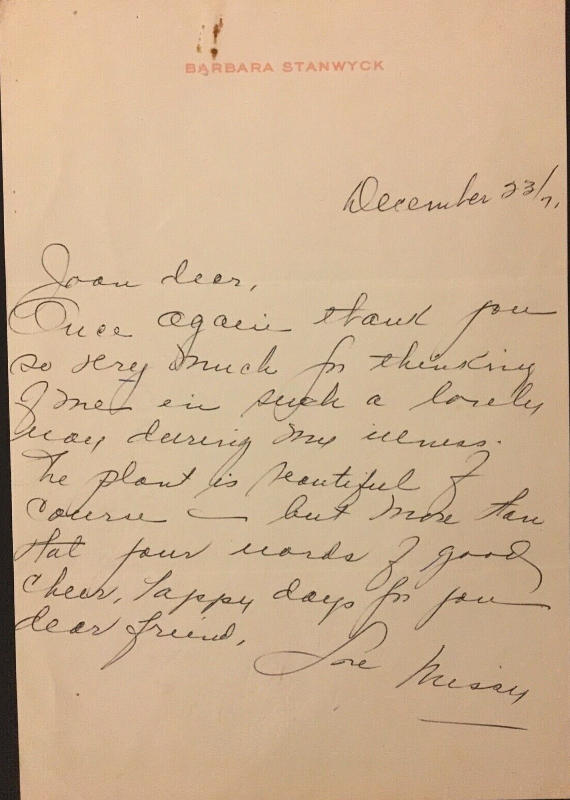 BARBARA STANWYCK
December 23/71
Joan dear,
Once again thank you
so very much for thinking
of me in such a lovely
way during my illness.
The plant is beautiful of
course – but more than
that your words of good
cheer, happy days for you
dear friend,
Love Missy